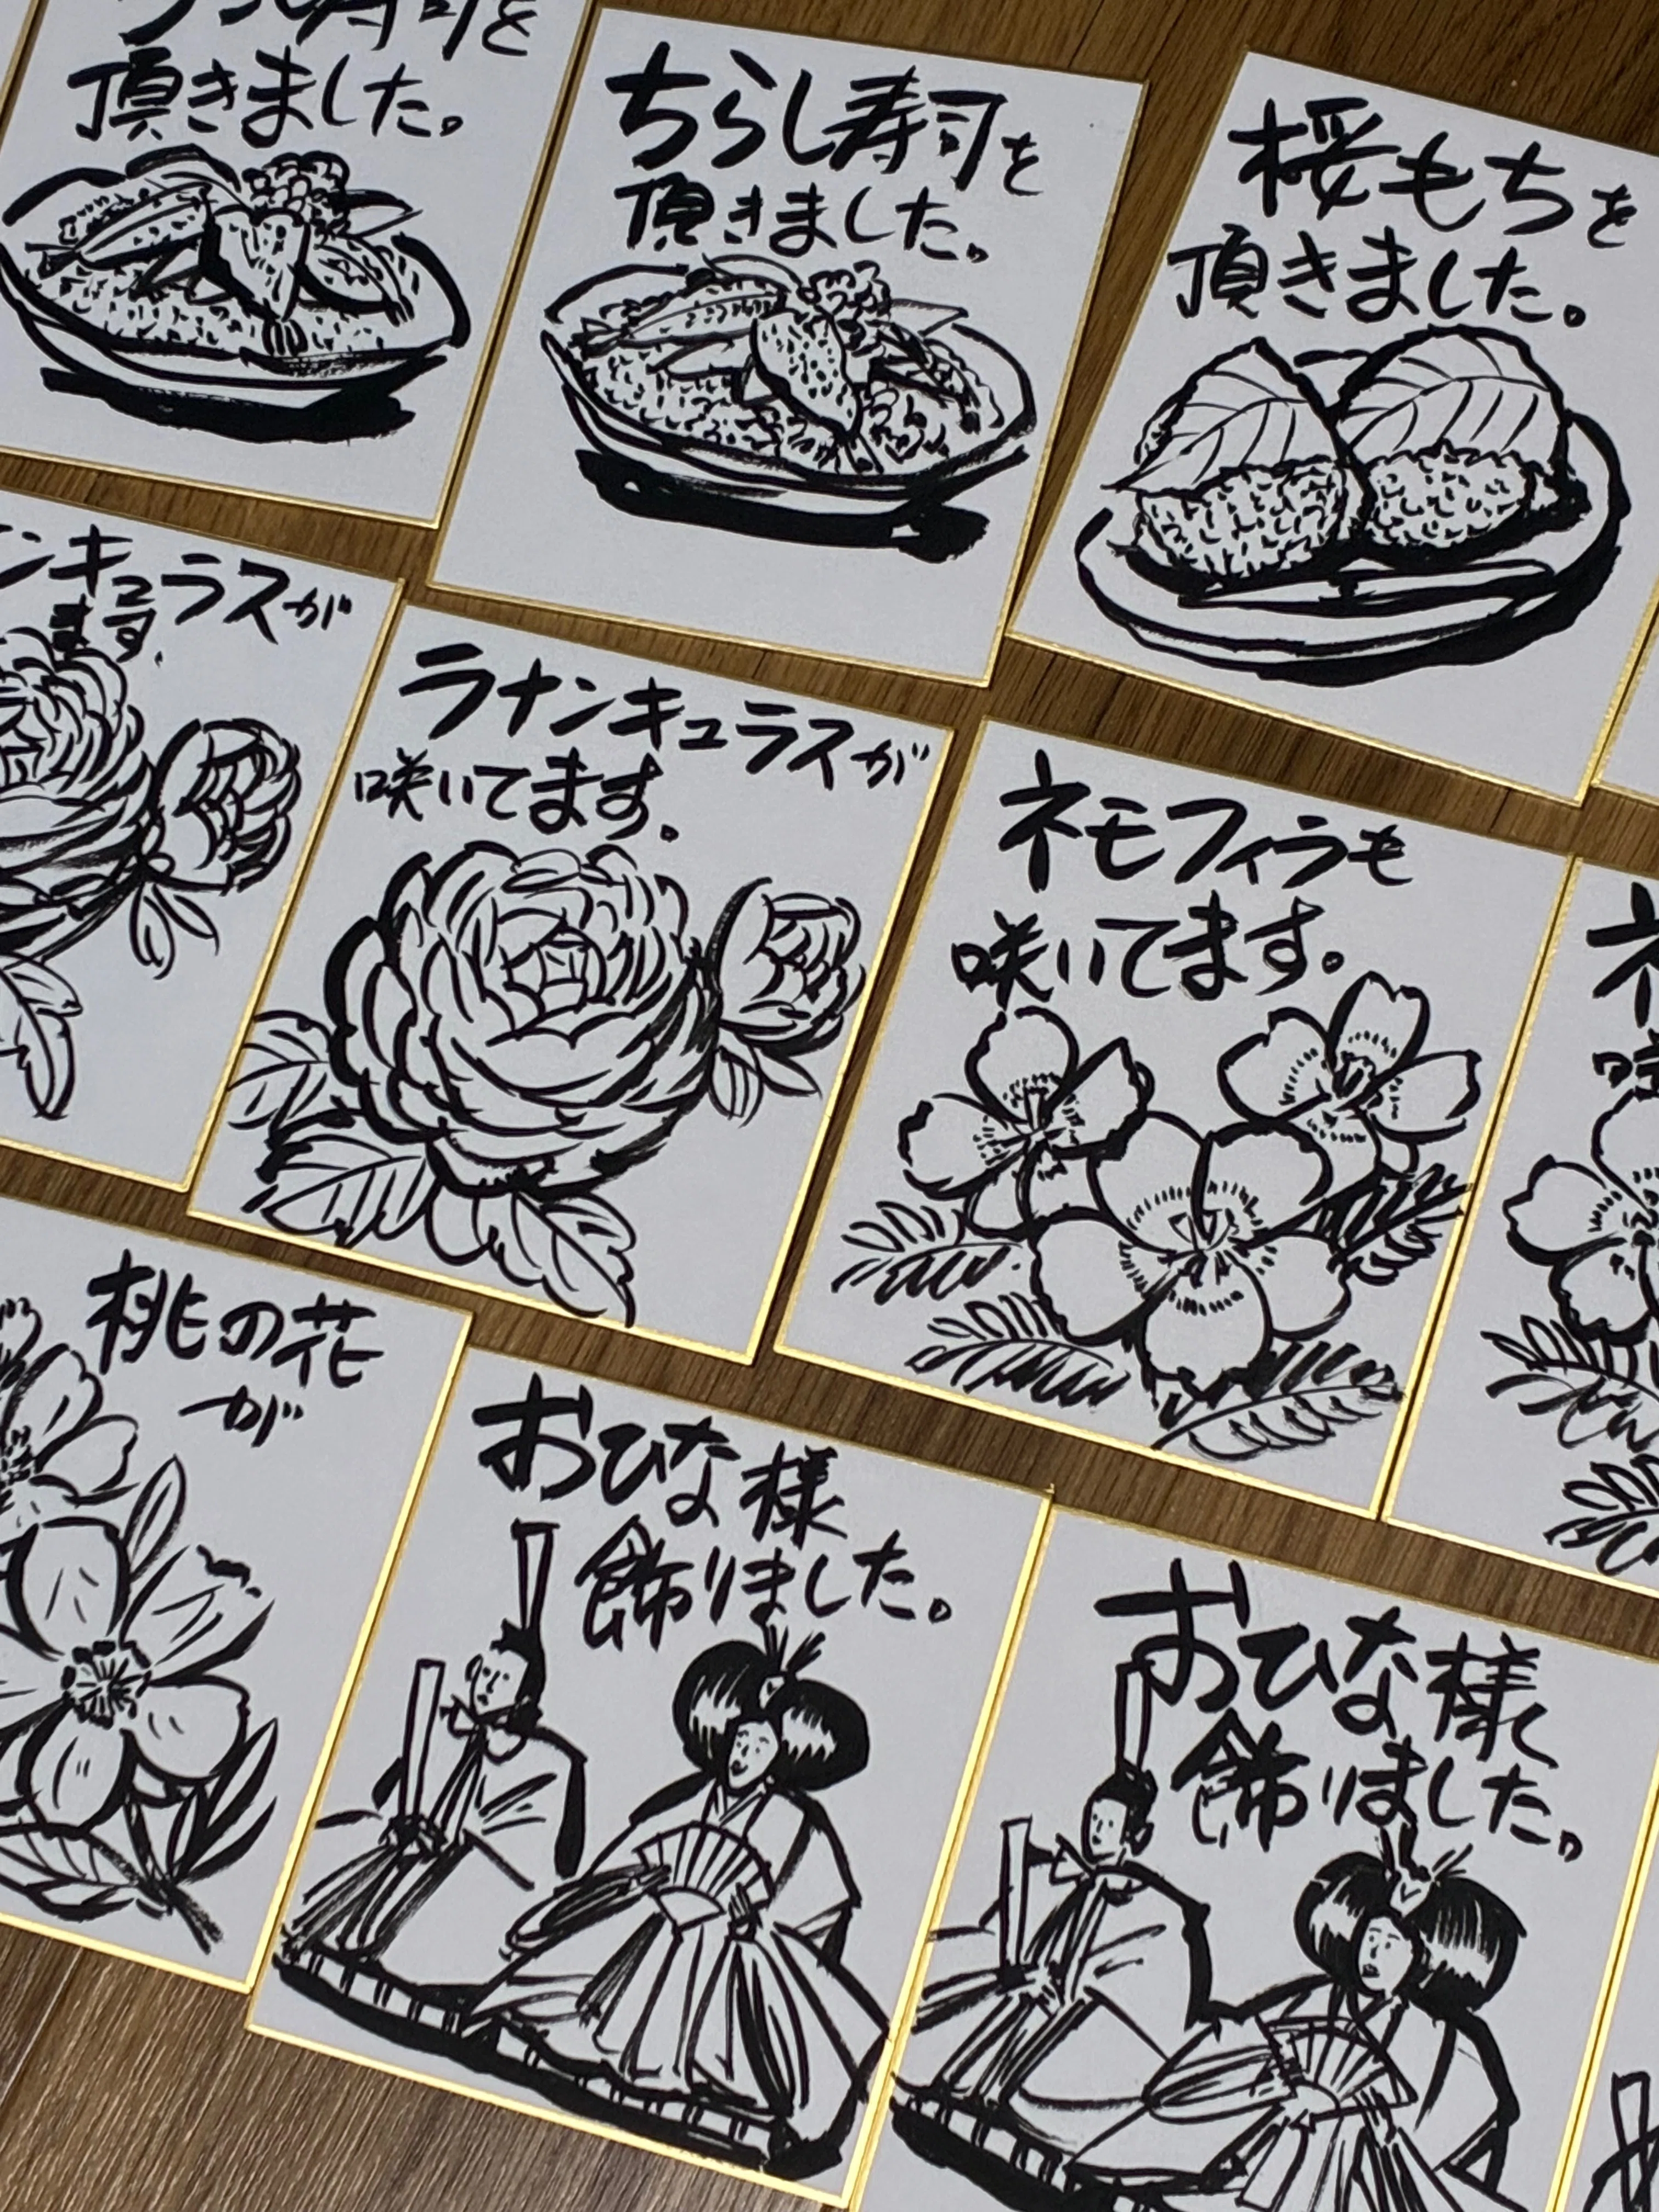 寿司を
頂きました。
ちらし寿司を
頂きました。
桜もちを
頂きました。
ンキュラスが
ます。
ラナンキュラスが
咲いてます。
ネモフィラも
咲いてます。
ネ
咲
桃の花
が
おひな様
飾りました。
おひな様
飾りました。